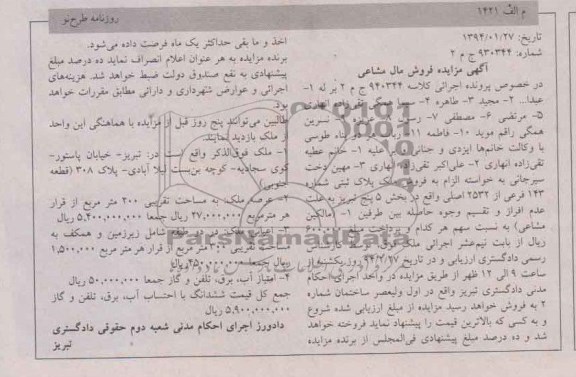 م الف ۱۴۲۱
روزنامه طرح‌نو
تاریخ: ۱۳۹۴/۰۱/۲۷
شماره: ۹۳۰۳۴۴ ج م ۲
آگهی مزایده فروش مال مشاعی
در خصوص پرونده اجرائی کلاسه ۹۴۰۳۴۴ ج م ۲ بر له ۱-
۲- مجید ۳- طاهره ۴- همگی تقی‌زاده انهاری
۵- مرتضی ۶- مصطفی ۷- نسرین
همگی راقم موید ۱۰- فاطمه ۱۱- طوسی
با وکالت خانم‌ها ایزدی و جنانی بر علیه ۱- خانم عطیه
تقی‌زاده انهاری ۲- علی‌اکبر تقی‌زاده انهاری ۳- مهین دخت
سیرجانی به خواسته الزام به فروش ملک پلاک ثبتی شماره
۱۴۳ فرعی از ۲۵۳۲ اصلی واقع در بخش ۵ تبریز به علت
عدم افراز و تقسیم وجوه حاصله بین طرفین ۱- (مالکین
مشاعی) به نسبت سهم هر کدام و پرداخت مبلغ
ریال از بابت نیم‌عشر اجرائی ملک فوق توسط کارشناس
رسمی دادگستری ارزیابی و در تاریخ ۹۴/۲/۲۷ روز یکشنبه از
ساعت ۹ الی ۱۲ ظهر از طریق مزایده در واحد اجرای احکام
مدنی دادگستری تبریز واقع در اول ولیعصر ساختمان شماره
۲ به فروش خواهد رسید مزایده از مبلغ ارزیابی شده شروع
و به کسی که بالاترین قیمت را پیشنهاد نماید فروخته خواهد
شد و ده درصد مبلغ پیشنهادی فی‌المجلس از برنده مزایده
اخذ و ما بقی حداکثر یک ماه فرصت داده می‌شود.
برنده مزایده به هر عنوان اعلام انصراف نماید ده درصد مبلغ
پیشنهادی به نفع صندوق دولت ضبط خواهد شد. هزینه‌های
اجرائی و عوارض شهرداری و دارائی مطابق مقررات خواهد
بود.
طالبین می‌توانند پنج روز قبل از مزایده با هماهنگی این واحد
از ملک بازدید نمایند.
۱- ملک فوق‌الذکر واقع است در: تبریز- خیابان پاستور-
کوی سجادیه- کوچه بن‌بست لیلا آبادی- پلاک ۳۰۸ (قطعه
جنوبی)
۲- عرصه ملک: به مساحت تقریبی ۲۰۰ متر مربع از قرار
هر مترمربع ۲۷,۰۰۰,۰۰۰ ریال جمعا ۵,۴۰۰,۰۰۰,۰۰۰ ریال
۳- اعیانی ملک: در دو طبقه شامل زیرزمین و همکف به
تقریبی ۳۰۰ متر مربع از قرار هر متر مربع ۱,۵۰۰,۰۰۰
ریال جمعا ۴۵۰,۰۰۰,۰۰۰ ریال
۴- امتیاز آب، برق، تلفن و گاز جمعا ۵۰,۰۰۰,۰۰۰ ریال
جمع کل قیمت ششدانگ با احتساب آب، برق، تلفن و گاز
۵,۹۰۰,۰۰۰,۰۰۰ ریال
دادورز اجرای احکام مدنی شعبه دوم حقوقی دادگستری
تبریز
ParsNamadData